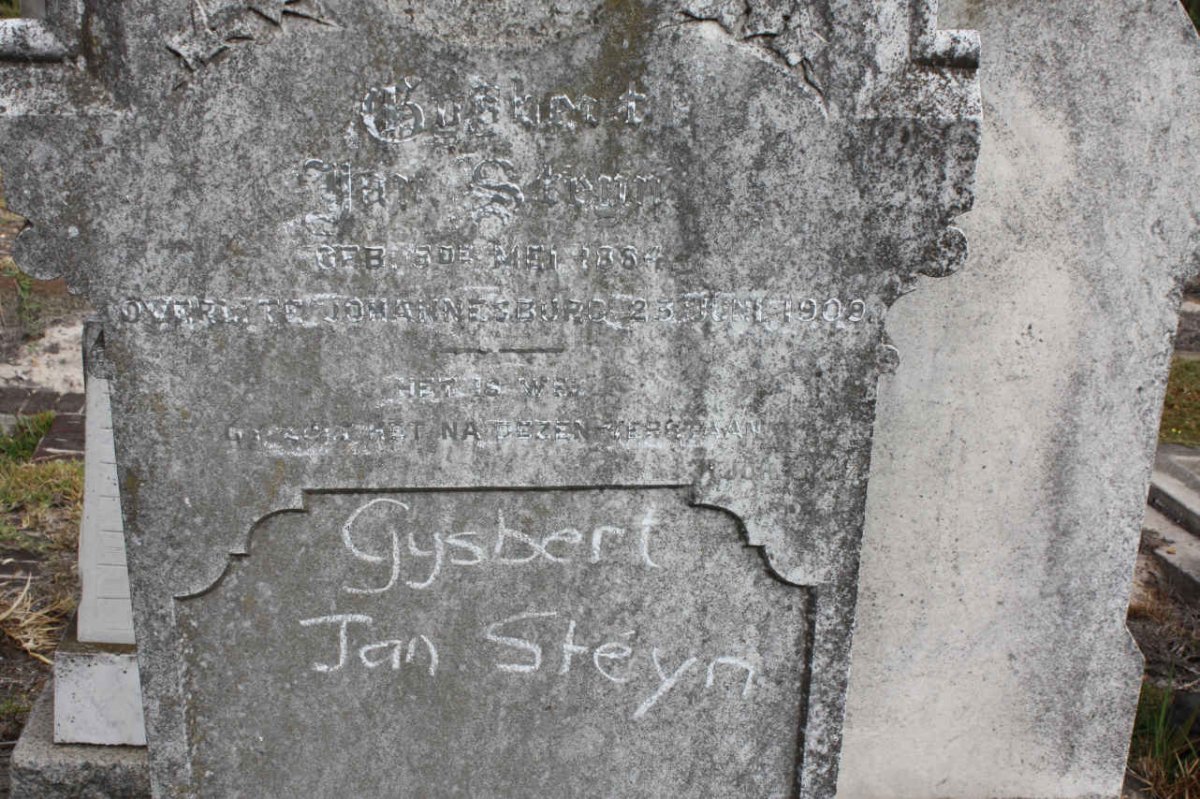 Gysbert
Jan Steyn
GEB. 3DE MEI 1884
OVERL. TE JOHANNESBURG 23 JUNI 1902
HET IS WEL
HET NA DEZEN VERSTAAN
Gysbert
Jan Steyn